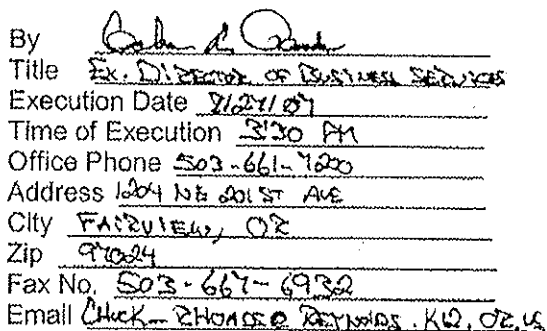 By
Title Ex. DIRECTOR OF BUSINESS SERVICES
Execution Date 8/27/07
Time of Execution 3:30 PM
Office Phone 503-661-7200
Address 1204 NE 201ST AVE
City FAIRVIEW, OR
Zip 97024
Fax No. 503-667-6932
Email CHUCK_RHOADS@REYNOLDS.K12.OR.US